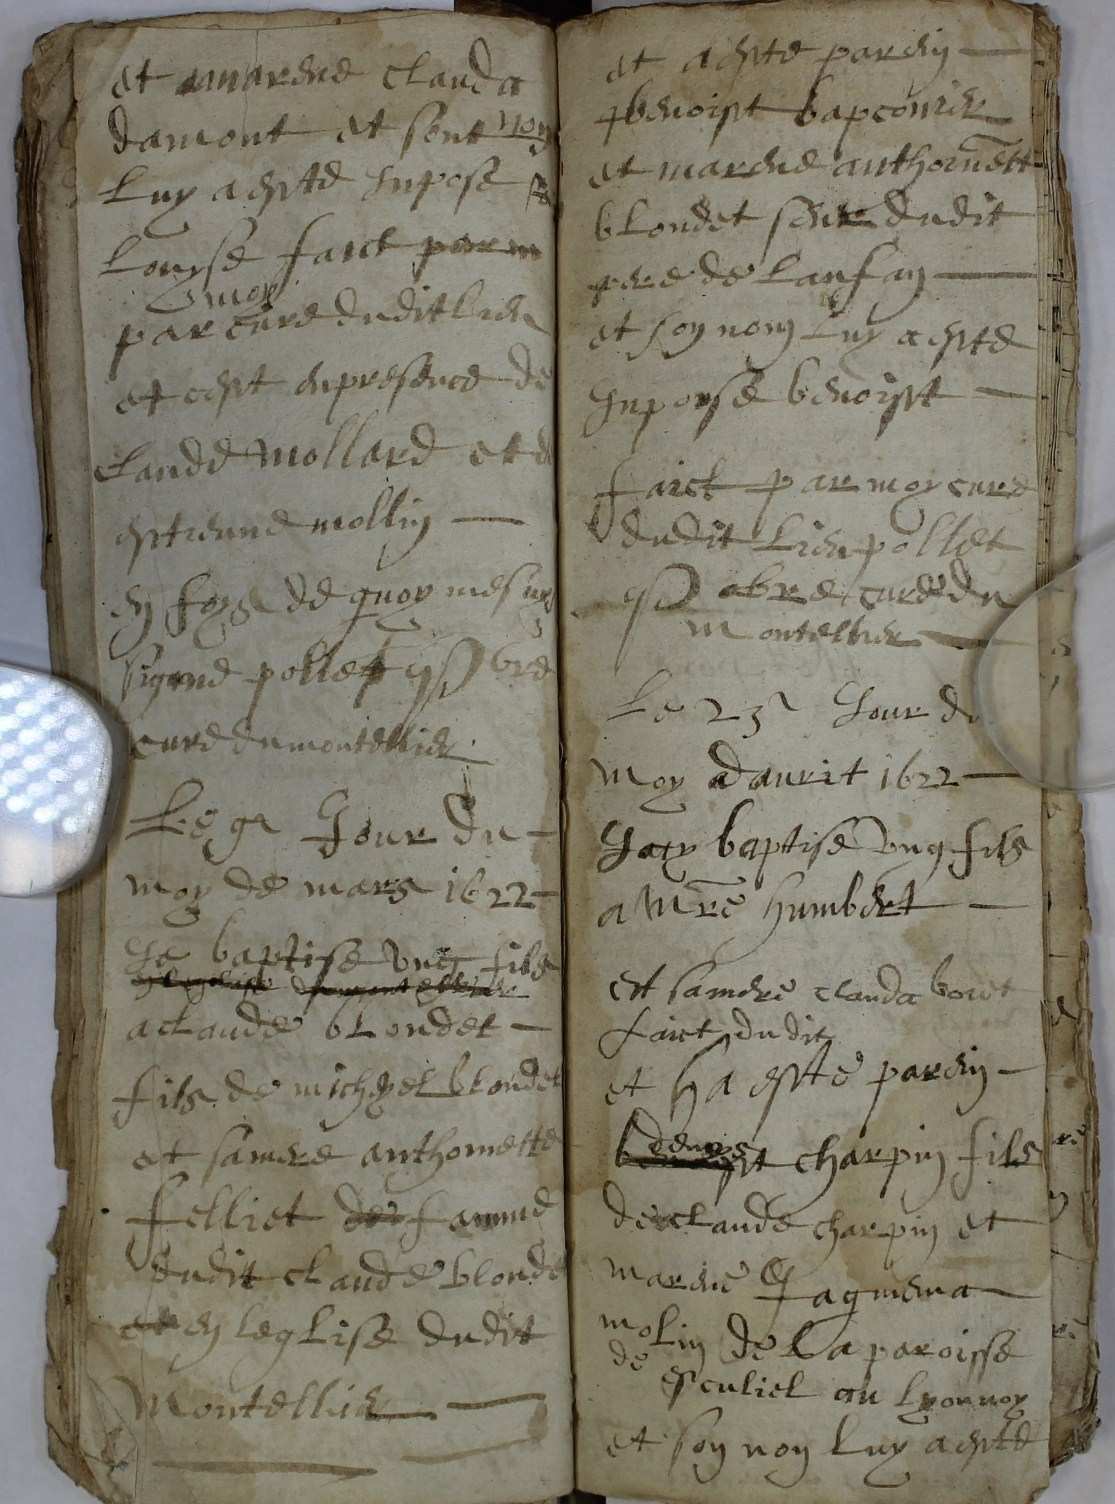 et marene clauda
damont et sont nom
luy a este Inposé
Louyse faict par
moy
par cure dudit lieu
et cest en presence de
claude mollard et de
estienne mollin
en foy de quoy me suys
signé pollet pbre
cure du montellier
Le 9e Jour du
moy de mars 1622
Je baptise ung fils
a claude blondet
fils de michyel blondet
et sa mere anthoinette
felliet famme
dudit claude blondet
en leglise dudit
Montellier
et a este parein
benoist bapcomier
et mareine anthoinette
blondet seur dudit
pere de lanfan
et son nom luy a este
Inpousé benoisst
faict par moy cure
dudit lieu pollet
pbre cure du
montellier
Le 23e Jour du
moy dauril 1622
Jay baptisé ung fils
a Mre humbert
et sa mere clauda boret
faict dudit
et ha esté parein
denys charpin fils
de claude charpin et
mareine Jaquema
molin de la paroisse
de esculiel au lyonnoy
et son nom luy a este